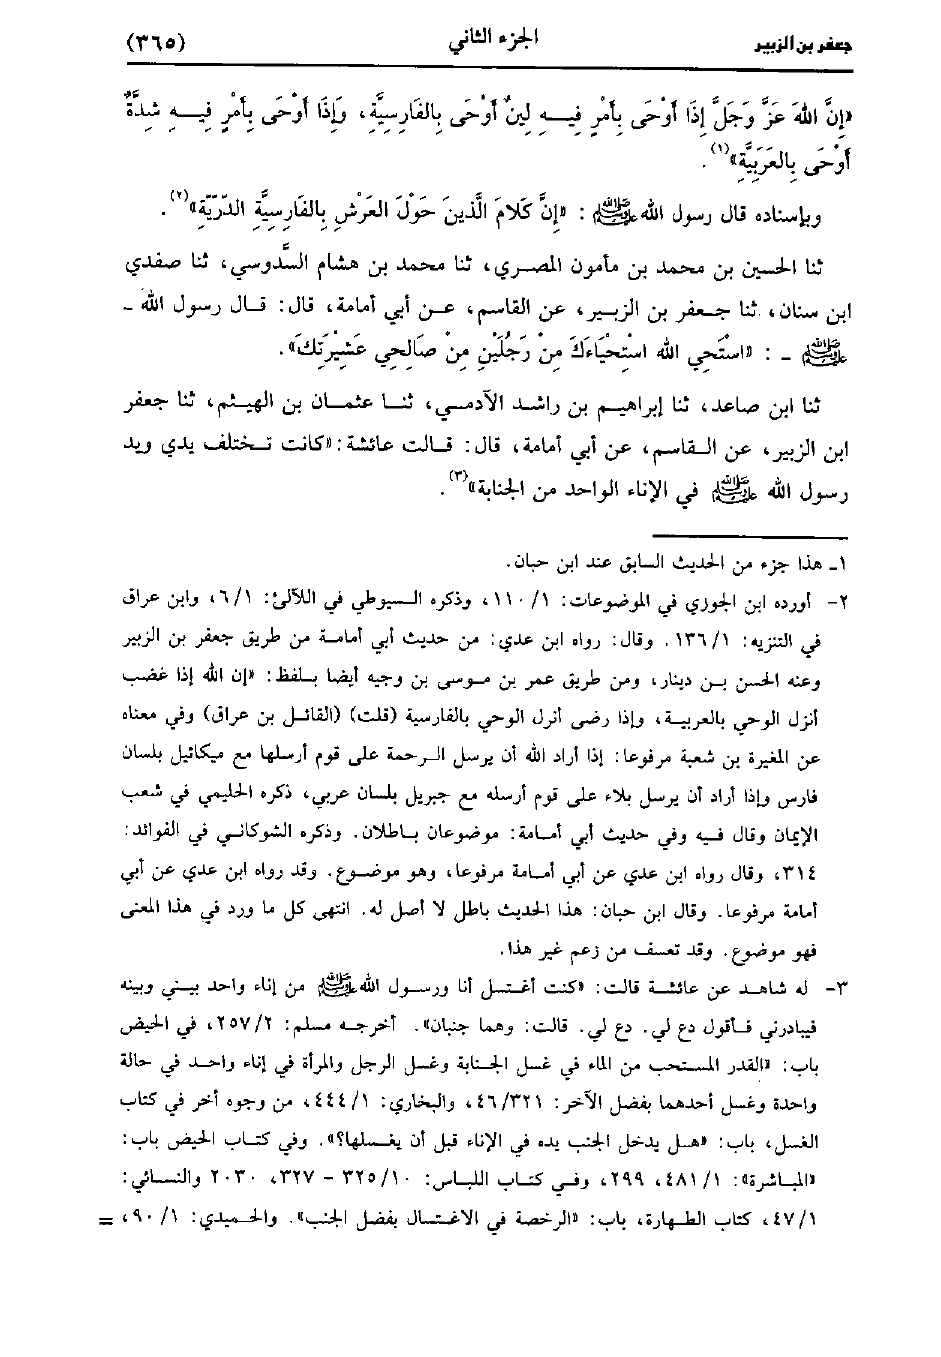 جعفر بن الزبير الجزء الثاني (٣٦٥)
«إِنَّ اللهَ عَزَّ وَجَلَّ إِذَا أَوْحَى بِأَمْرٍ فِيهِ لِينٌ أَوْحَى بِالفَارِسِيَّةِ، وَإِذَا أَوْحَى بِأَمْرٍ فِيهِ شِدَّةٌ
أَوْحَى بِالعَرَبِيَّةِ»(١).
وبإسناده قال رسول الله ﷺ : «إِنَّ كَلَامَ الَّذِينَ حَوْلَ العَرْشِ بِالفَارِسِيَّةِ الدّرِّيّةِ»(٢).
ثنا الحسين بن محمد بن مأمون المصري، ثنا محمد بن هشام السَّدوسي، ثنا صفدي
ابن سنان، ثنا جعفر بن الزبير، عن القاسم، عن أبي أمامة، قال: قال رسول الله -
ﷺ - : «اسْتَحِي الله اسْتِحْيَاءَكَ مِنْ رَجُلَيْنِ مِنْ صَالِحِي عَشِيْرَتِكَ».
ثنا ابن صاعد، ثنا إبراهيم بن راشد الآدمي، ثنا عثمان بن الهيثم، ثنا جعفر
ابن الزبير، عن القاسم، عن أبي أمامة، قال: قالت عائشة: «كانت تختلف يدي ويد
رسول الله ﷺ في الإناء الواحد من الجنابة»(٣).
١- هذا جزء من الحديث السابق عند ابن حبان.
٢- أورده ابن الجوزي في الموضوعات: ١/ ١١٠، وذكره السيوطي في اللآلئ: ٦/١، وابن عراق
في التنزيه: ١٣٦/١. وقال: رواه ابن عدي: من حديث أبي أمامة من طريق جعفر بن الزبير
وعنه الحسن بن دينار، ومن طريق عمر بن موسى بن وجيه أيضا بلفظ: «إن الله إذا غضب
أنزل الوحي بالعربية، وإذا رضى أنزل الوحي بالفارسية (قلت) (القائل بن عراق) وفي معناه
عن المغيرة بن شعبة مرفوعا: إذا أراد الله أن يرسل الرحمة على قوم أرسلها مع ميكائيل بلسان
فارس وإذا أراد أن يرسل بلاء على قوم أرسله مع جبريل بلسان عربي، ذكره الحليمي في شعب
الإيمان وقال فيه وفي حديث أبي أمامة: موضوعان باطلان. وذكره الشوكاني في الفوائد:
٣١٤، وقال رواه ابن عدي عن أبي أمامة مرفوعا، وهو موضوع. وقد رواه ابن عدي عن أبي
أمامة مرفوعا. وقال ابن حبان: هذا الحديث باطل لا أصل له. انتهى كل ما ورد في هذا المعنى
فهو موضوع. وقد تعسف من زعم غير هذا.
٣- له شاهد عن عائشة قالت: «كنت أغتسل أنا ورسول الله ﷺ من إناء واحد بيني وبينه
فيبادرني فأقول دع لي. دع لي. قالت: وهما جنبان». أخرجه مسلم: ٢٥٧/٢، في الحيض
باب: «القدر المستحب من الماء في غسل الجنابة وغسل الرجل والمرأة في إناء واحد في حالة
واحدة وغسل أحدهما بفضل الآخر: ٤٦/٣٢١، والبخاري: ٤٤٤/١، من وجوه أخر في كتاب
الغسل، باب: «هل يدخل الجنب يده في الإناء قبل أن يغسلها؟». وفي كتاب الحيض باب:
«المباشرة»: ٤٨١/١، ٢٩٩، وفي كتاب اللباس: ٣٢٥/١٠ - ٣٢٧، ٢٠٣٠ والنسائي:
٤٧/١، كتاب الطهارة، باب: «الرخصة في الاغتسال بفضل الجنب». والحميدي: ٩٠/١، =